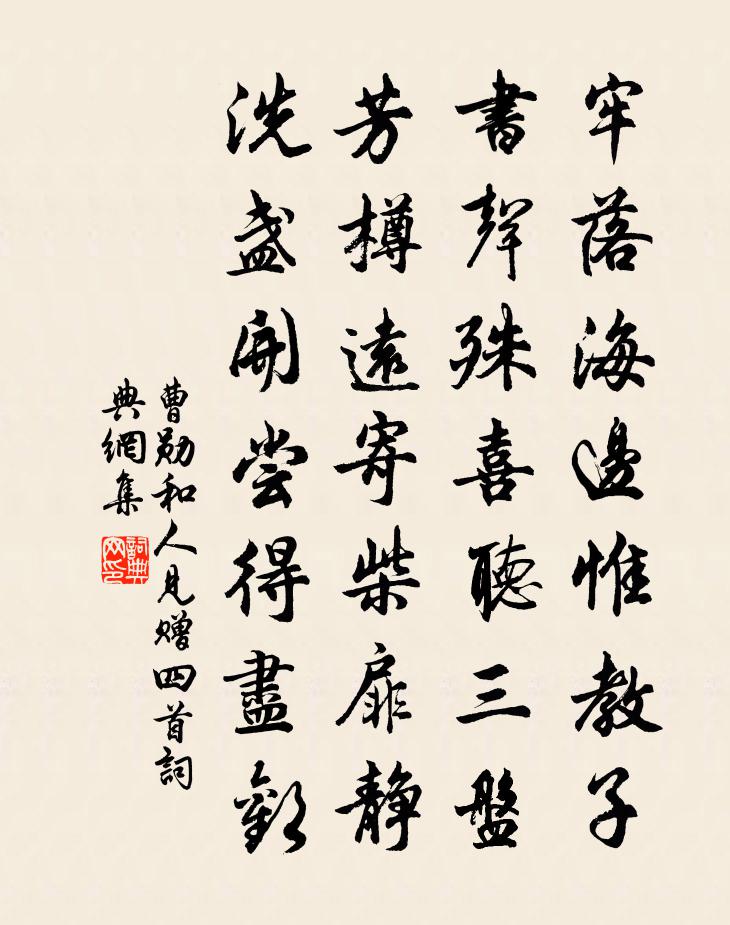 牢落海邊惟教子
書聲殊喜聽三盤
芳樽遠寄柴扉靜
洗盞開嘗得盡歡
曹勛和人見贈四首詞
典網集
詞典
网印